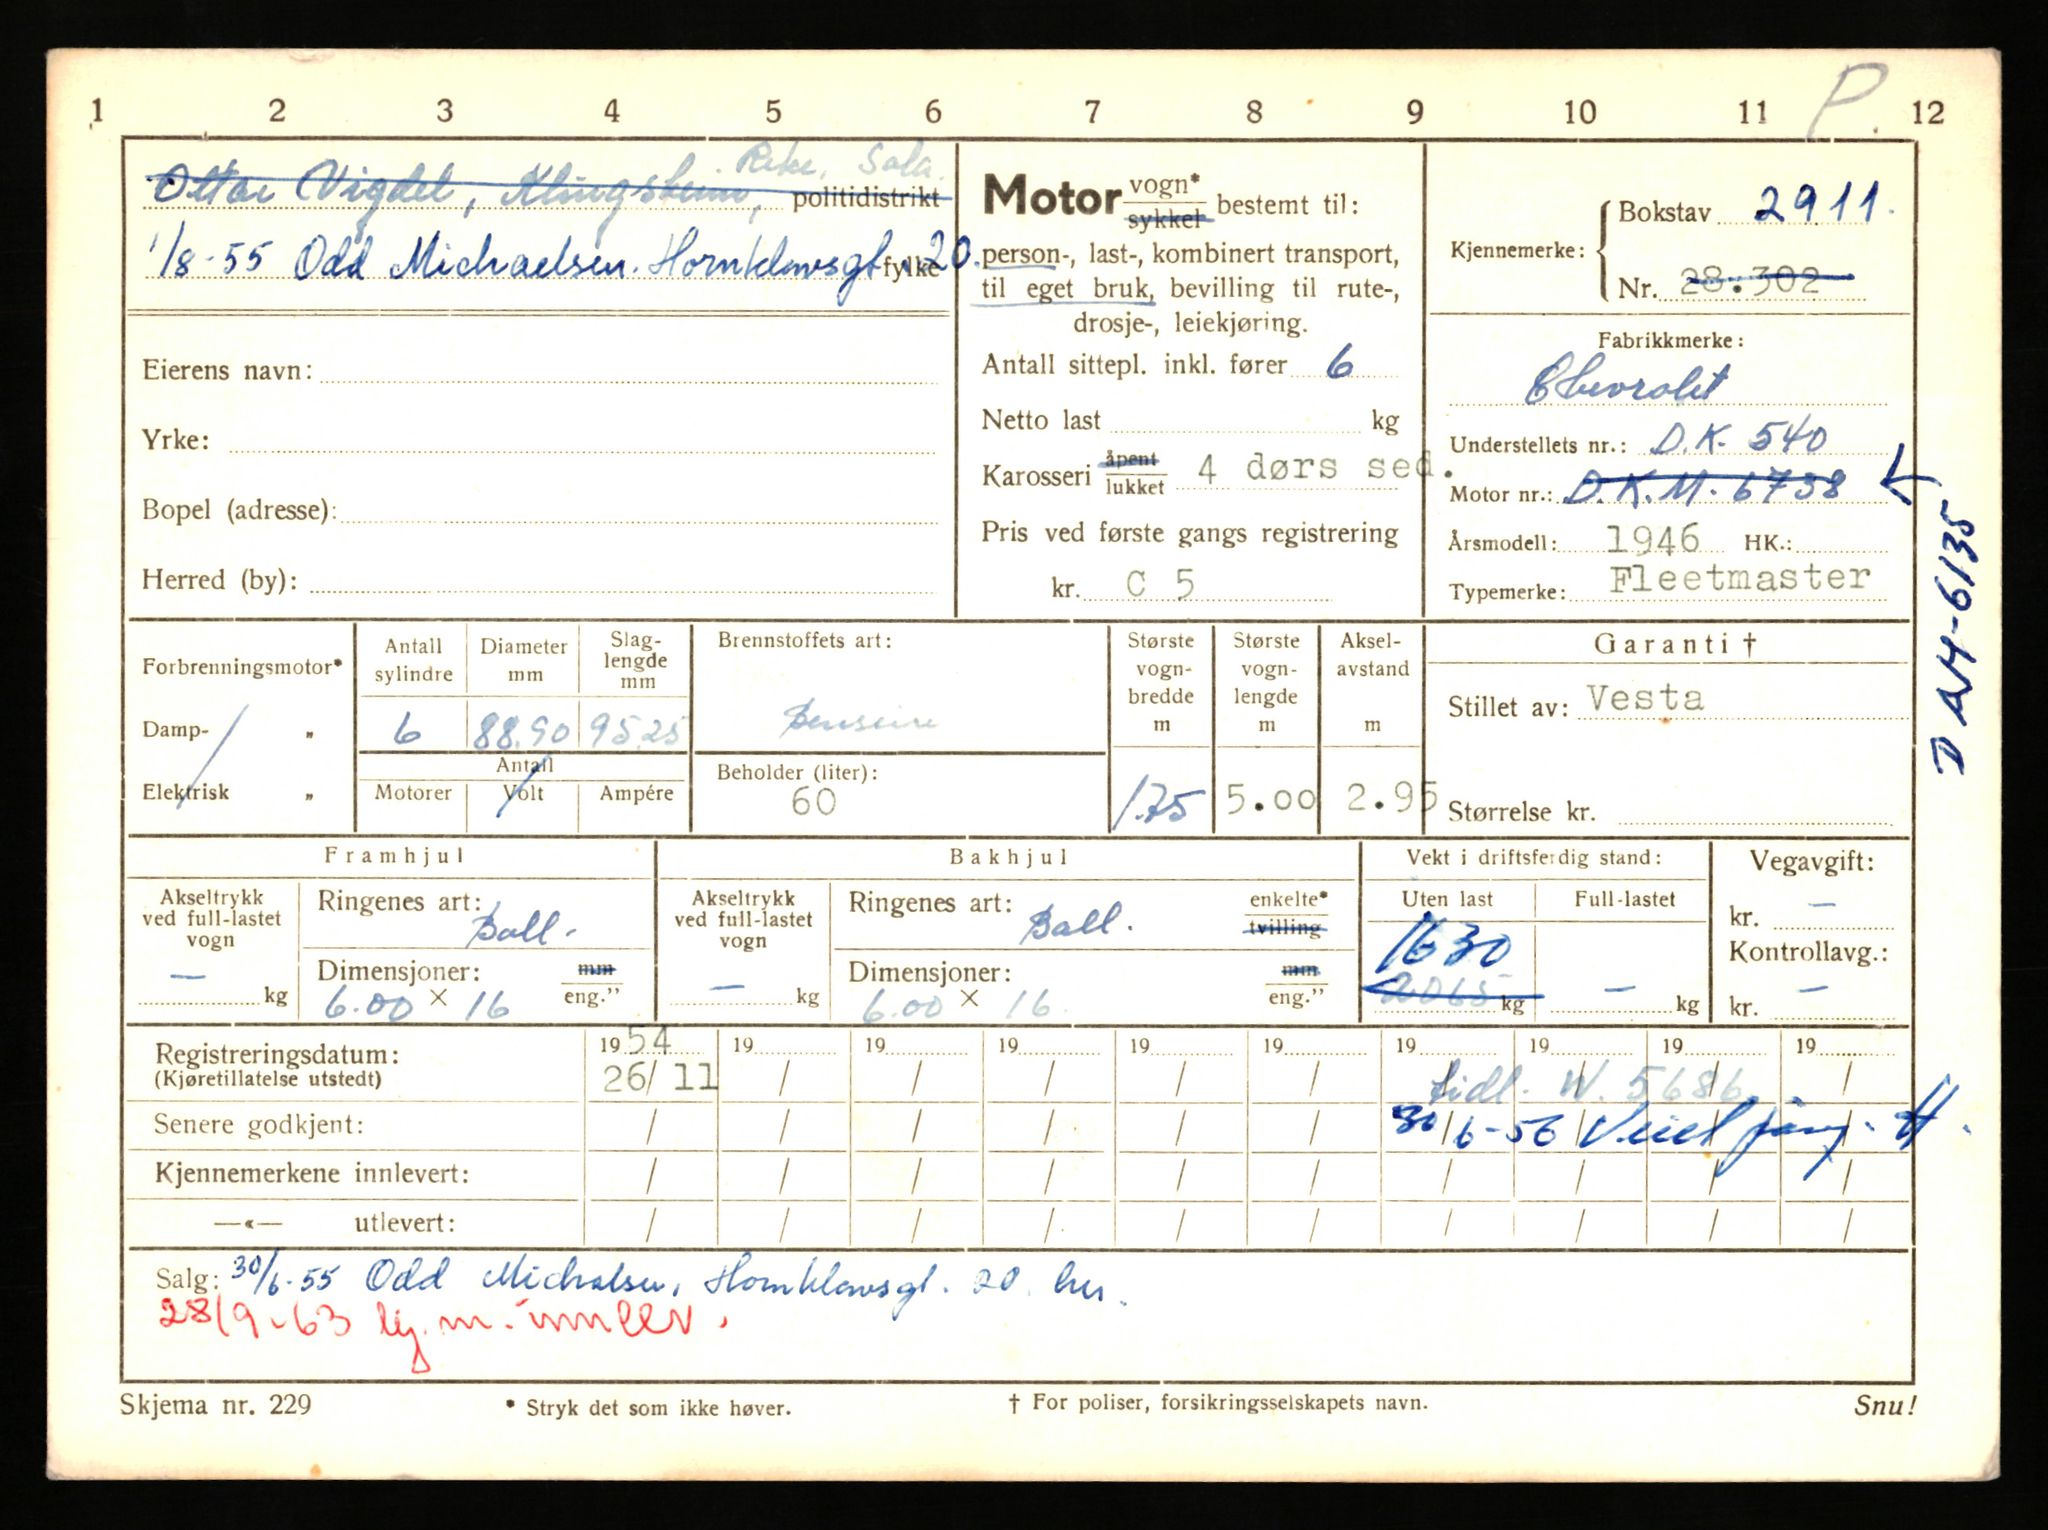 1 2 3 4 5 6 7 8 9 10 11 12
P.
Ottar Vigdel, Klingsheim, Sola. politidistrikt
1/8-55 Odd Michaelsen. Hornklovsgt. 20. fylke
Eierens navn:
Yrke:
Bopel (adresse):
Herred (by):
Motor vogn* sykkel bestemt til:
person-, last-, kombinert transport,
til eget bruk, bevilling til rute-,
drosje-, leiekjøring.
Antall sittepl. inkl. fører 6
Netto last kg
Karosseri åpent lukket 4 dørs sed.
Pris ved første gangs registrering
kr. C 5
Kjennemerke: Bokstav 2911.
Nr. 28.302
Fabrikkmerke:
Chevrolet
Understellets nr.: D.K. 540
Motor nr.: D.K.M. 6738
DAM-6135
Årsmodell: 1946 HK.:
Typemerke: Fleetmaster
Forbrenningsmotor*
Damp- „
Elektrisk „
Antall sylindre 6
Diameter mm 88.90
Slag-lengde mm 95.25
Antall
Motorer Volt Ampére
Brennstoffets art:
Benseine
Beholder (liter):
60
Største vogn-bredde m 1.75
Største vogn-lengde m 5.00
Aksel-avstand m 2.95
Garanti †
Stillet av: Vesta
Størrelse kr.
Framhjul
Akseltrykk ved full-lastet vogn – kg
Ringenes art: Ball.
Dimensjoner: mm eng."
6.00 × 16
Bakhjul
Akseltrykk ved full-lastet vogn – kg
Ringenes art: Ball. enkelte* tvilling
Dimensjoner: mm eng."
6.00 × 16
Vekt i driftsferdig stand:
Uten last Full-lastet
1630
2065 kg – kg
Vegavgift:
kr. –
Kontrollavg.:
kr. –
Registreringsdatum: 1954 19 19 19 19 19 19 19 19 19
(Kjøretillatelse utstedt) 26/11 / / / / / tidl. W. 5686
Senere godkjent: / / / / / / 30/6-56
Kjennemerkene innlevert: / / / / / / / / / /
—«— utlevert: / / / / / / / / / /
Salg: 30/6-55 Odd Michalsen, Hornklovsgt. 20. her.
28/9-63 kj.m. innlev.
Skjema nr. 229 * Stryk det som ikke høver. † For poliser, forsikringsselskapets navn. Snu!